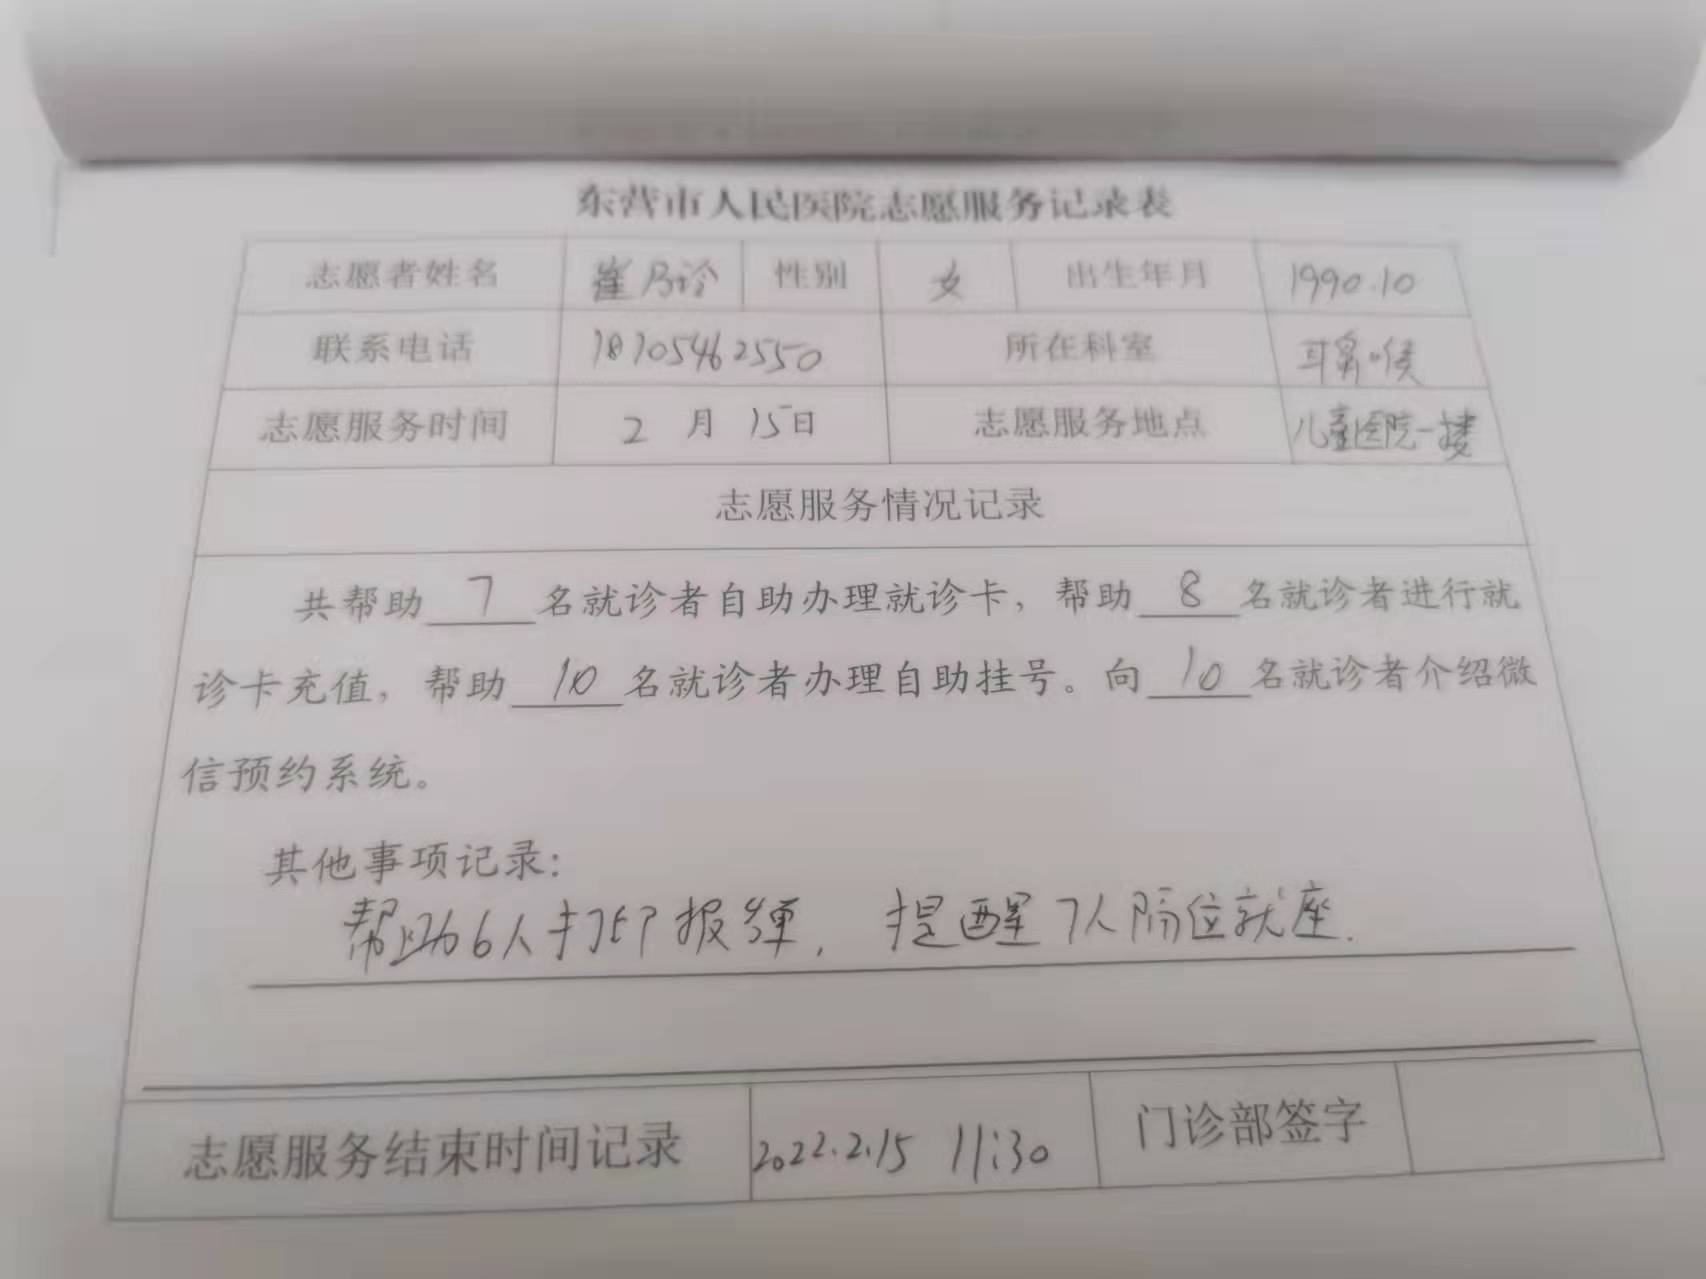 东营市人民医院志愿服务记录表
志愿者姓名 崔 性别 女 出生年月 1990.10
联系电话 18105462550 所在科室 耳鼻喉
志愿服务时间 2 月 15日 志愿服务地点 儿童医院一楼
志愿服务情况记录
共帮助 7 名就诊者自助办理就诊卡，帮助 8 名就诊者进行就
诊卡充值，帮助 10 名就诊者办理自助挂号。向 10 名就诊者介绍微
信预约系统。
其他事项记录：
帮助6人打印报单，提醒7人隔位就座.
志愿服务结束时间记录 2022.2.15 11:30 门诊部签字